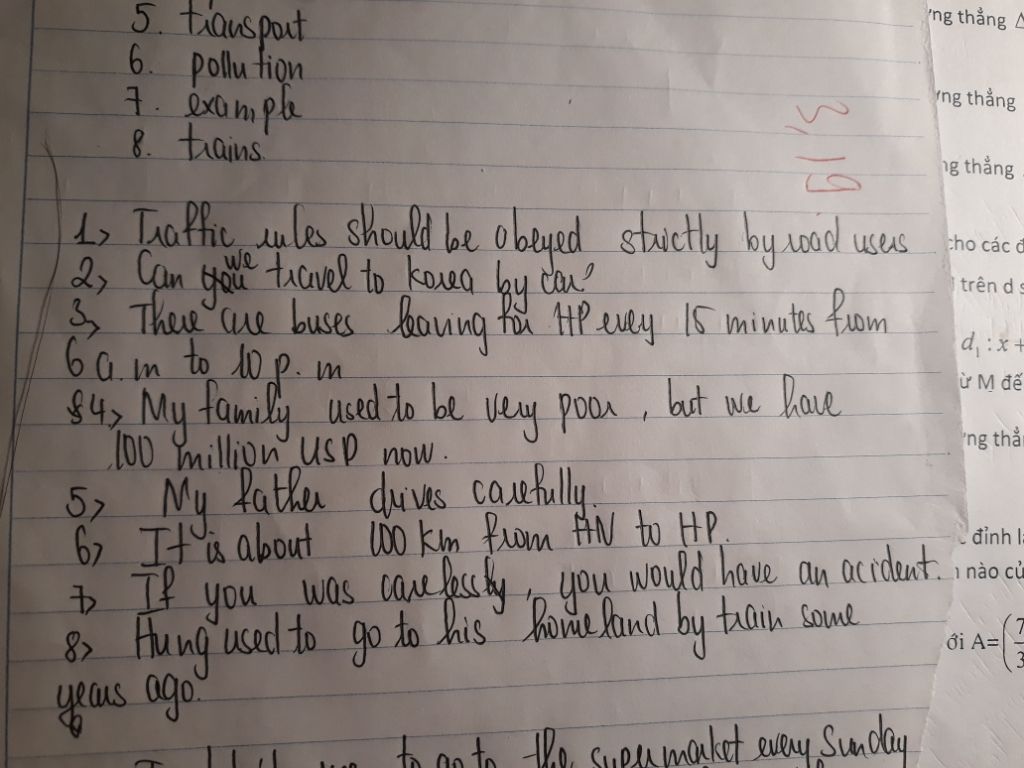 5. transport
6. pollution
7. example
8. trains
1> Traffic rules should be obeyed strictly by road users
2> Can you we travel to Korea by car?
3> There are buses leaving for HP every 15 minutes from
6 a.m to 10 p.m
84> My family used to be very poor, but we have
100 million USD now.
5> My father drives carefully.
6> It is about 100 km from HN to HP.
7> If you was carelessly, you would have an acident.
8> Hung used to go to his homeland by train some
years ago.
to go to the supermarket every Sunday
ng thẳng
ng thẳng
thẳng
cho các
trên d
d₁ : x +
ừ M đế
ng thẳ
đỉnh
nào củ
ới A=(7
3